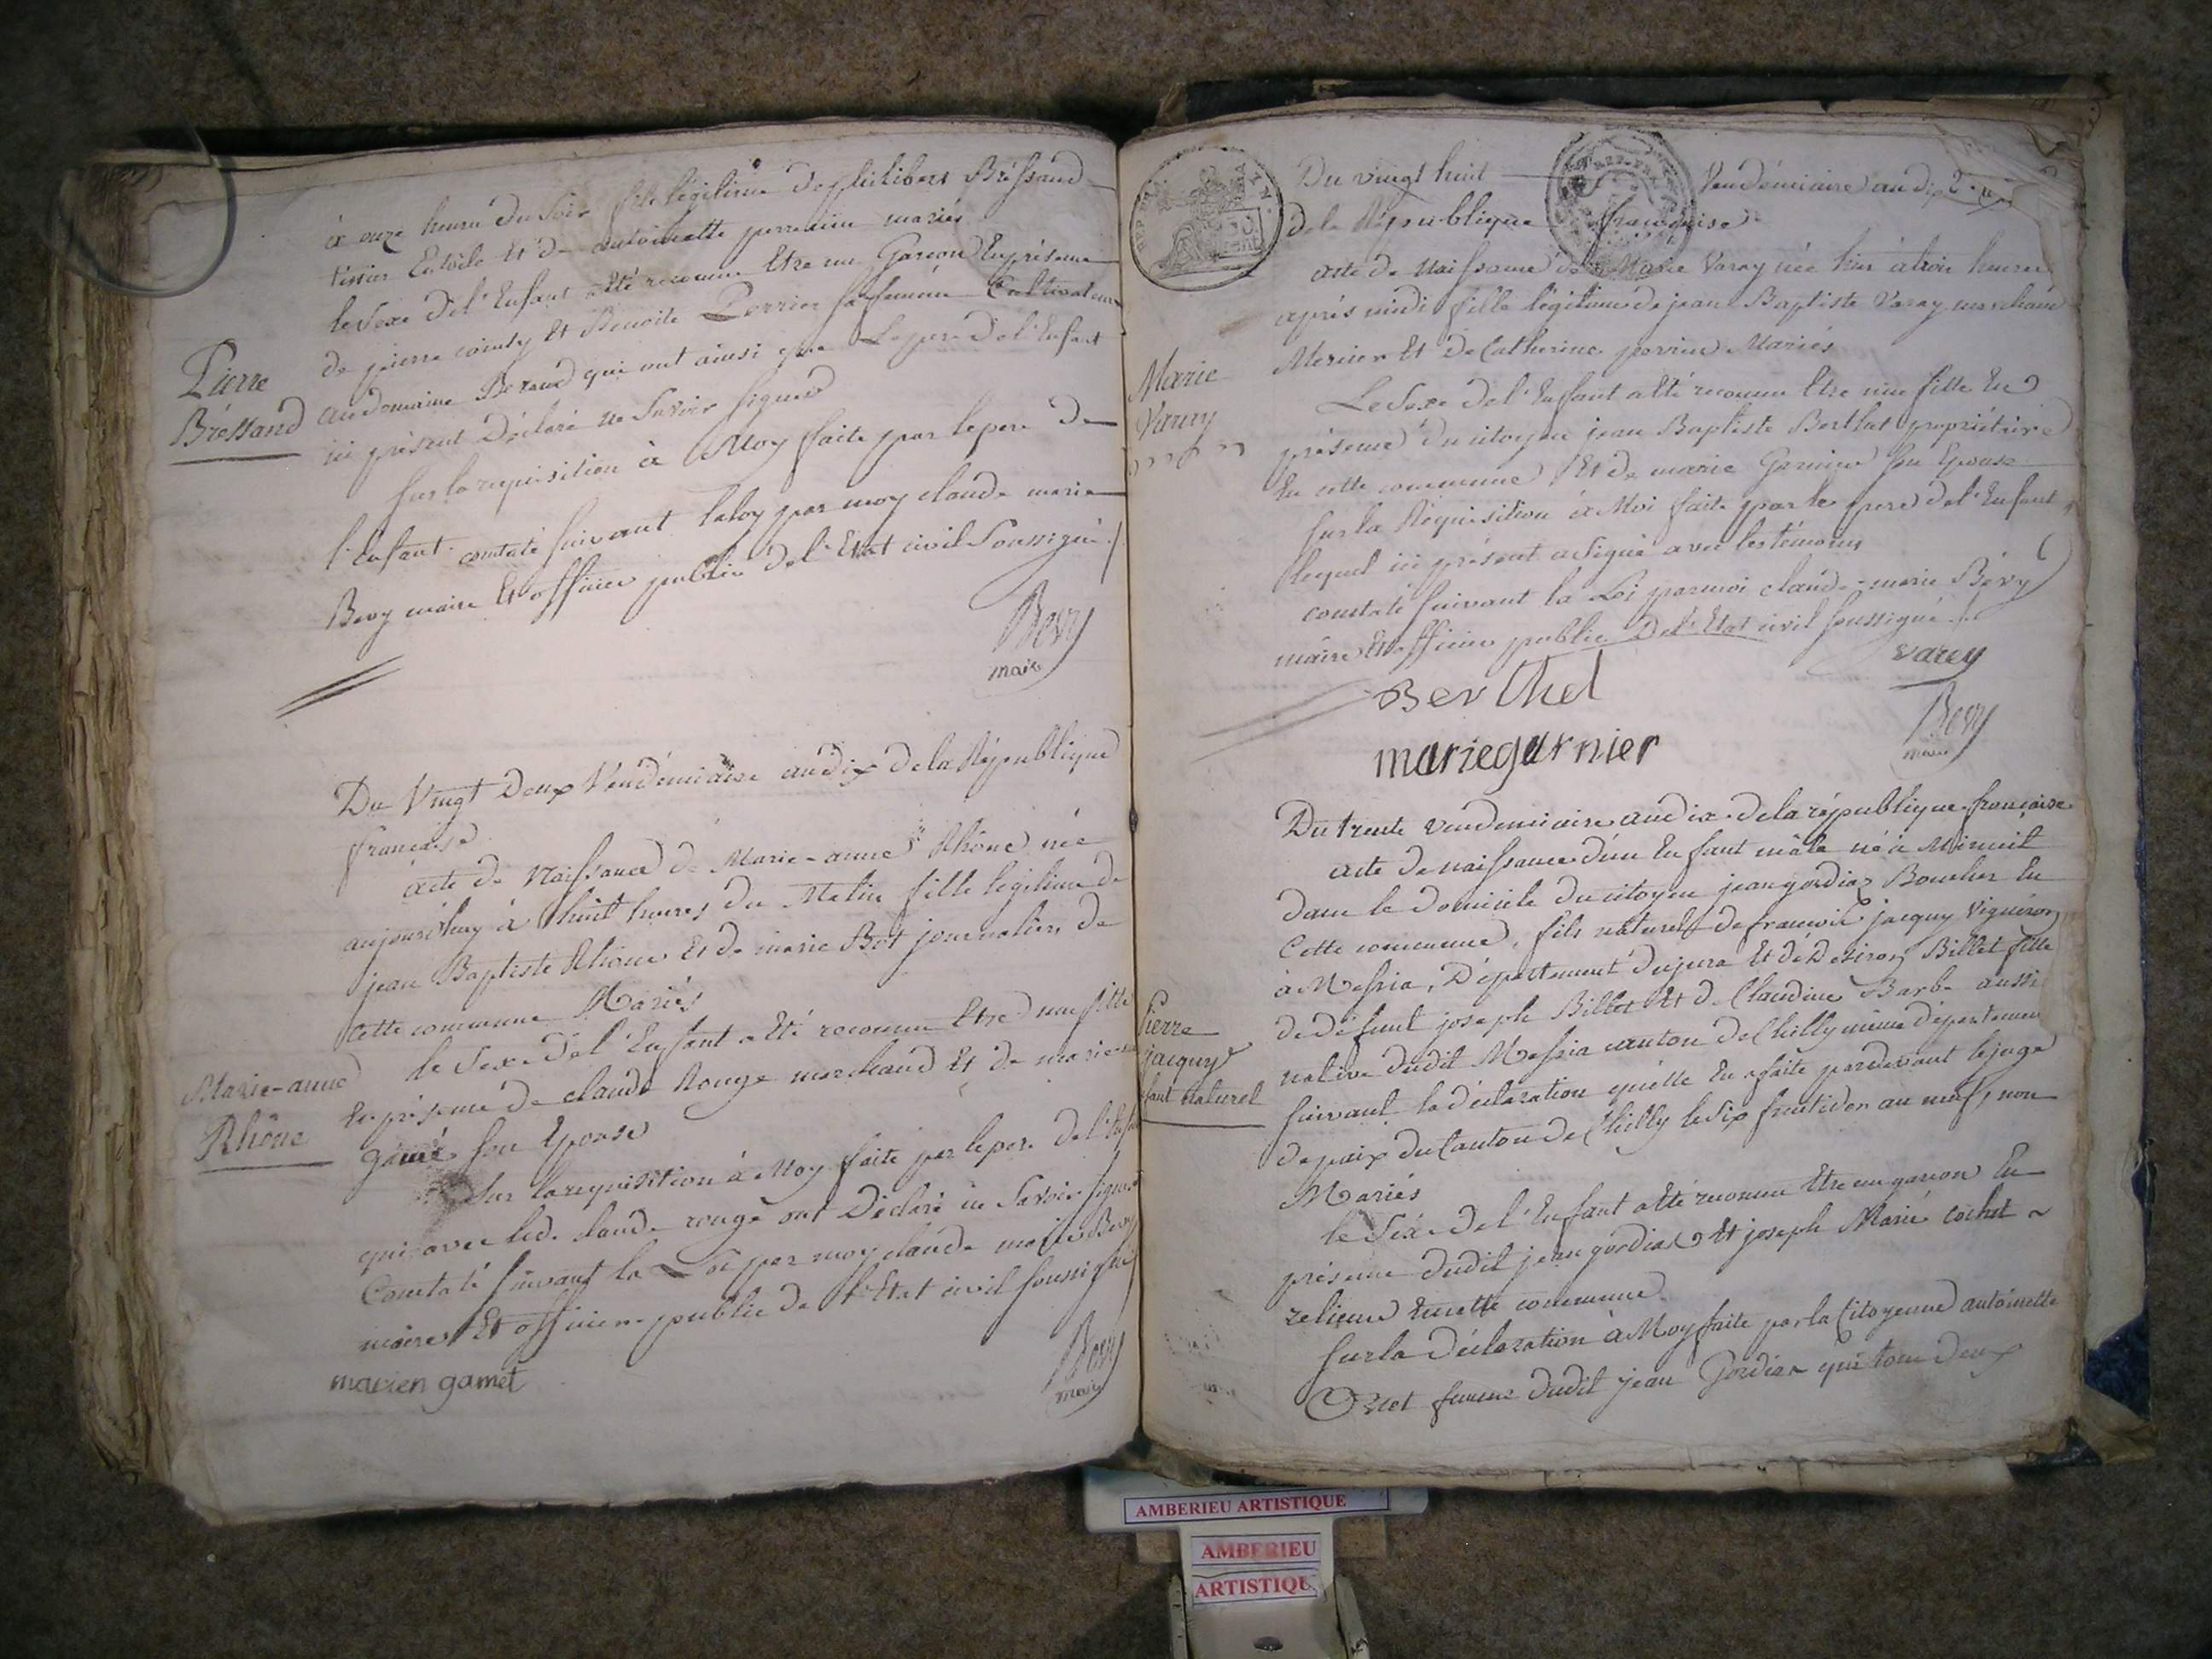 à onze heures du soir fils légitime de philibert Bressand
tissier en toile Et de antoinette perretin mariés
le sexe de l'Enfant a été reconnu Etre un Garçon En présence
de pierre Et Benoite Perrier sa femme Cultivateurs
au domaine Beraud qui ont ainsi que Le pere de l'Enfant
ici présent Déclaré ne Savoir Signer
Pierre
Bressand
Sur la requisition à Moy faite par le pere de
l'Enfant constaté suivant la loy par moy claude marie
Bevy maire Et officier public de l'Etat civil Soussigné
Bevy
maire
Du Vingt Deux Vendémiaire an dix de la République
française
acte de Naissance de Marie-anne Rhône née
aujourd'huy à huit heures du Matin fille legitime de
jean Baptiste Rhône Et de marie Bot journaliers de
cette commune Mariés
Marie-anne
Rhône
le Sexe de l'Enfant a Eté reconnu Etre une fille
En présence de claude Rouge marchand Et de marie
Gamé son Epouse
Sur la requisition à Moy faite par le pere de l'Enfant
qui avec led. claude rouge ont Déclaré ne Savoir signer
Constaté suivant la Loi par moy claude marie Bevy
maire Et officier public de l'Etat civil soussigné
marien gamet
Bevy
maire
REP. FRA.
AIN.
Du vingt huit Vendémiaire an dix
de la République française
acte de Naissance de Marie Varay née hier à trois heures
après midi fille légitime de jean Baptiste Varay marchand
Mercier Et de Catherine perrin Mariés
Marie
Varay
Le Sexe de l'Enfant a Eté reconnu Etre une fille En
présence du citoyen jean Baptiste Berthet propriétaire
En cette commune Et de marie Garnier son Epouse
Sur la Réquisition à Moi faite par le pere de l'Enfant
lequel ici présent a signé avec les témoins
constaté suivant la Loi par moi claude-marie Bevy
maire Et officier public De l'Etat civil soussigné
varey
Berthet
Bevy
maire
mariegarnier
Du trente vendemiaire an dix de la république françoise
acte de naissance d'un Enfant mâle né à Minuit
dans le domicile du citoyen jean gordiaz Boucher En
Cette commune, fils naturel de françois jacquy Vigneron
à Messia, Département du jura Et de Désirez Billet fille
de défunt joseph Billet Et de Claudine Barbe aussi
native dudit Messia canton de Chilly même département
Pierre
jacquy
fant Naturel
suivant la déclaration qu'elle En a faite pardevant le juge
de paix du Canton de Chilly le six fructidor an neuf, non
Mariés
le Sexe de l'Enfant a Eté reconnu Etre un garçon En
présence dudit jean gordiaz Et joseph Marie cochet
relieur En cette commune
Sur la déclaration à Moy faite par la Citoyenne antoinette
Oret femme dudit jean Gordiaz qui tous deux
AMBERIEU ARTISTIQUE
AMBERIEU
ARTISTIQU